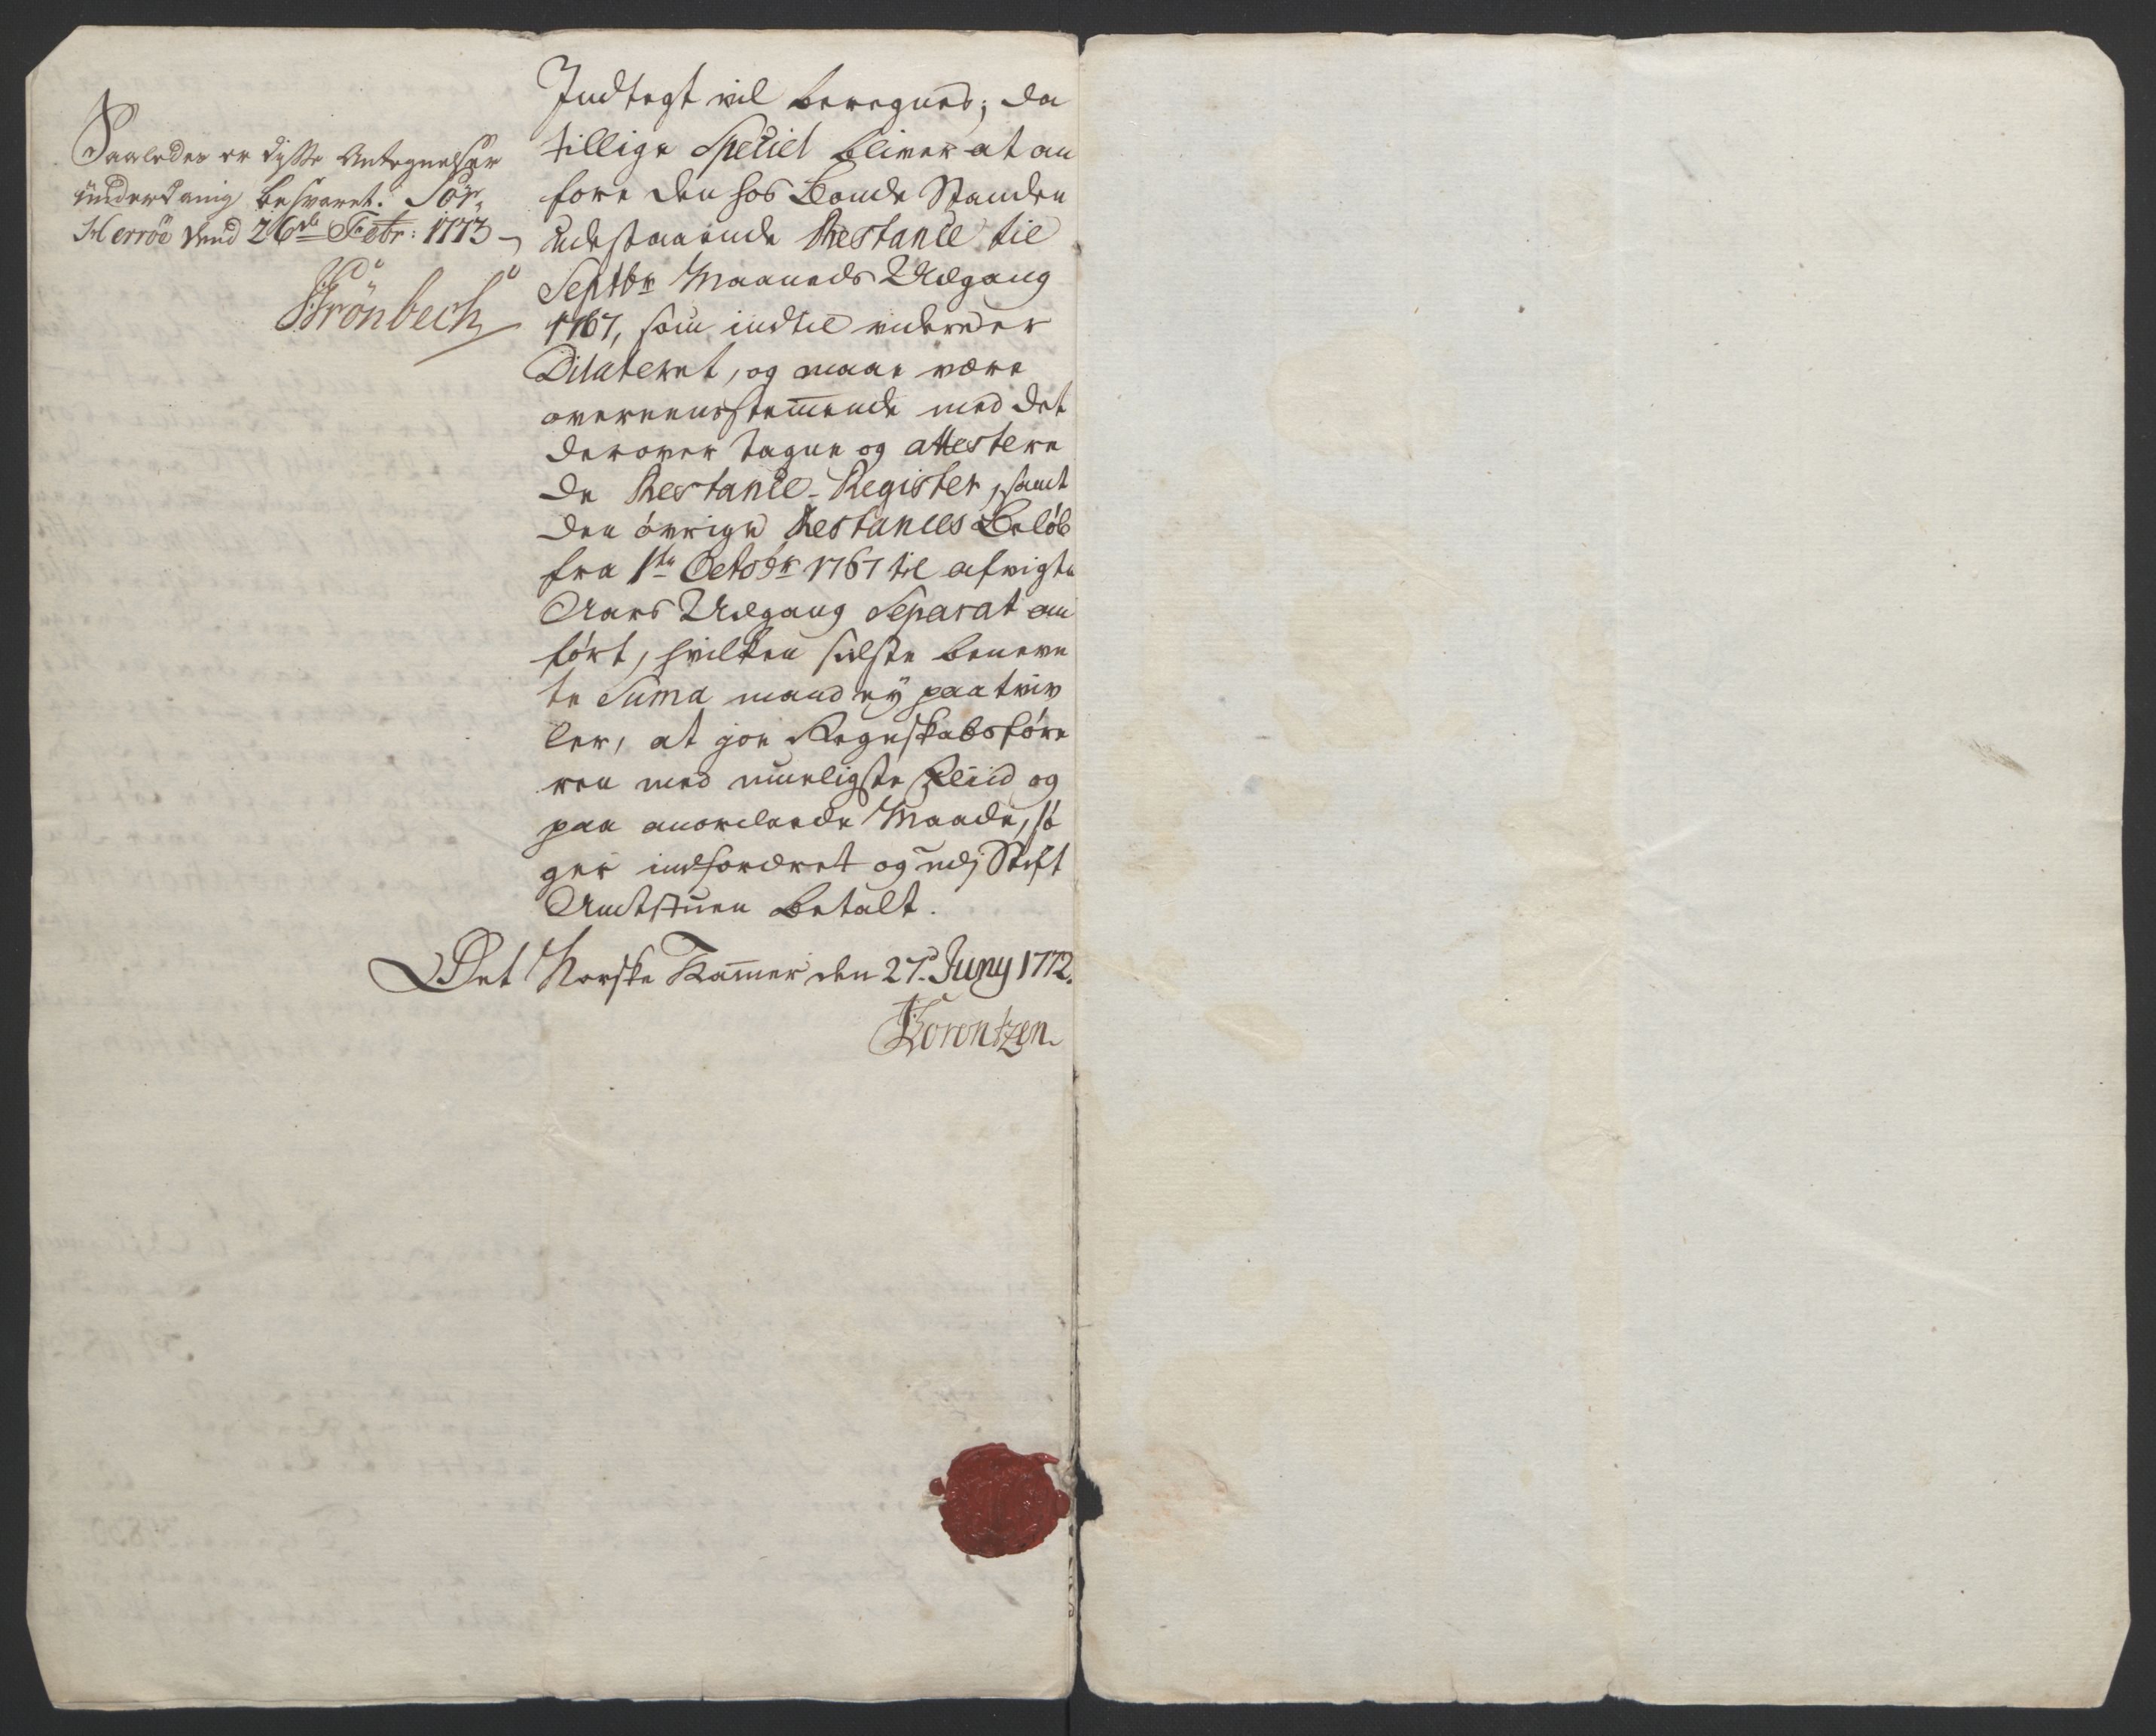 Saaledes er disse Antegnelser
underdanig besvaret. Sör-
Herröe dend 26de Febr: 1773
Grönbech
Indtegt vil beregnes; da
tillige Speciel bliver at an
føre den hos Bonde Standen
udestaaende Restance til
Septbr Maaneds Udgang
1767, som indtil videre er
Dilateret, og maae være
overeensstem̅ende med det
derover tagne og attestere
de Restance-Register, samt
den övrige Restances Belöb
fra 1ste Octobr 1767 til afvigte
Aars Udgang Separat an
fört, hvilken sidste benevn
te Sum̅a mand ey paatviv
ler, at jo Regnskabsföre
ren med mueligste Fliid og
paa anordnede Maade, sö
ger indfordret og udj Stift
Amtstuen betalt.
Det Norske Kam̅er den 27. Juny 1772.
Lorentzen.